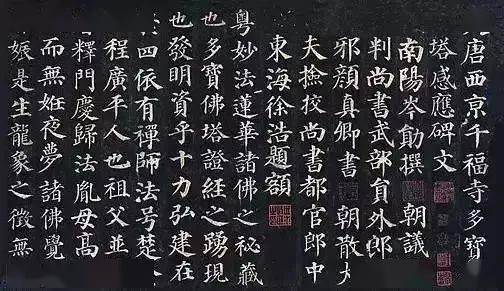 唐西京千福寺多寶
塔感應碑文
南陽岑勛撰 朝議
判尚書武部員外郎
邪顏真卿書 朝散大
夫撿挍尚書都官郎中
東海徐浩題額
粵妙法蓮華諸佛之秘藏
也多寶佛塔證經之踴現
也發明資乎十力弘建在
四依有禪師法号楚
程廣平人也祖父並
釋門慶歸法胤母高
而無姙夜夢諸佛覺
娠是生龍象之徵無